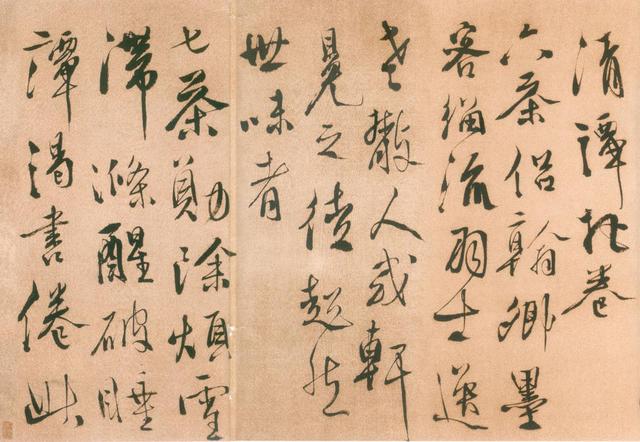 清譚把卷
六茶侣翰卿墨
客緇流羽士逸
老散人或軒
冕之徒超然
世味者
七茶勛除煩雪
滯滌醒破睡
譚渴書倦此